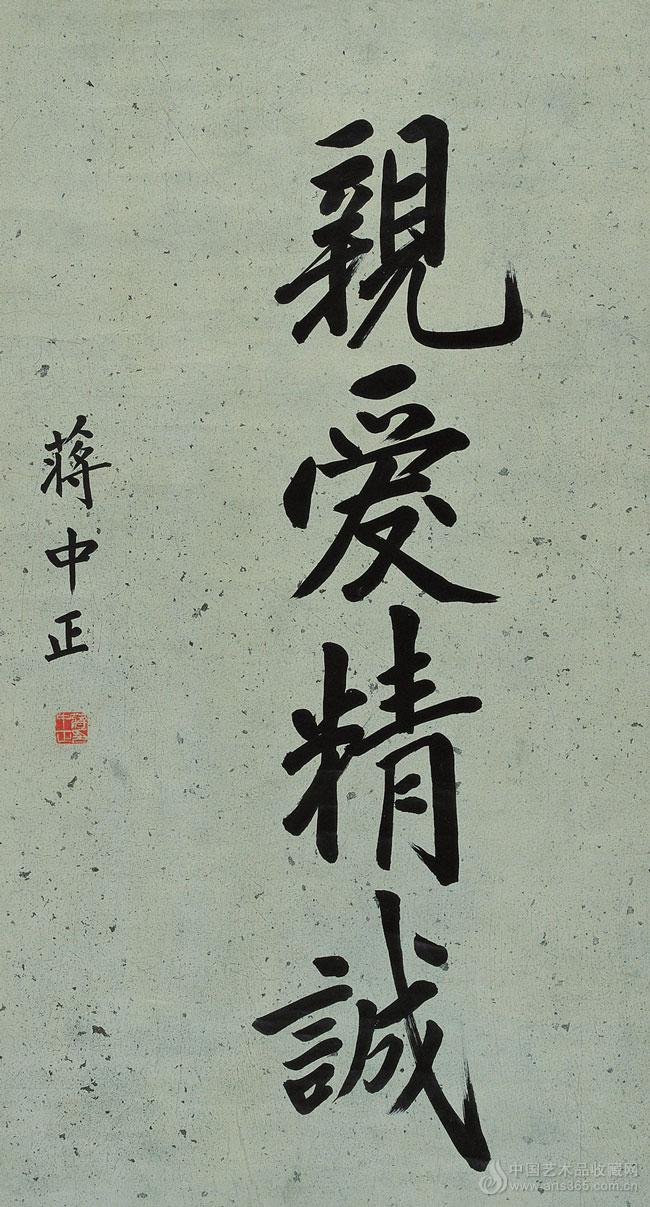 親愛精誠
蔣中正
中国艺术品收藏网
www.arts365.com.cn